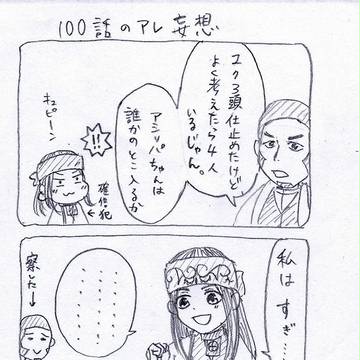 100話のアレ妄想
ユク3頭仕止めたけど、
よく考えたら4人
いるじゃん。
アシㇼパちゃんは
誰かのとこ入るか
!!!
キュピーン
確信犯
私はすぎ…
………………
察した